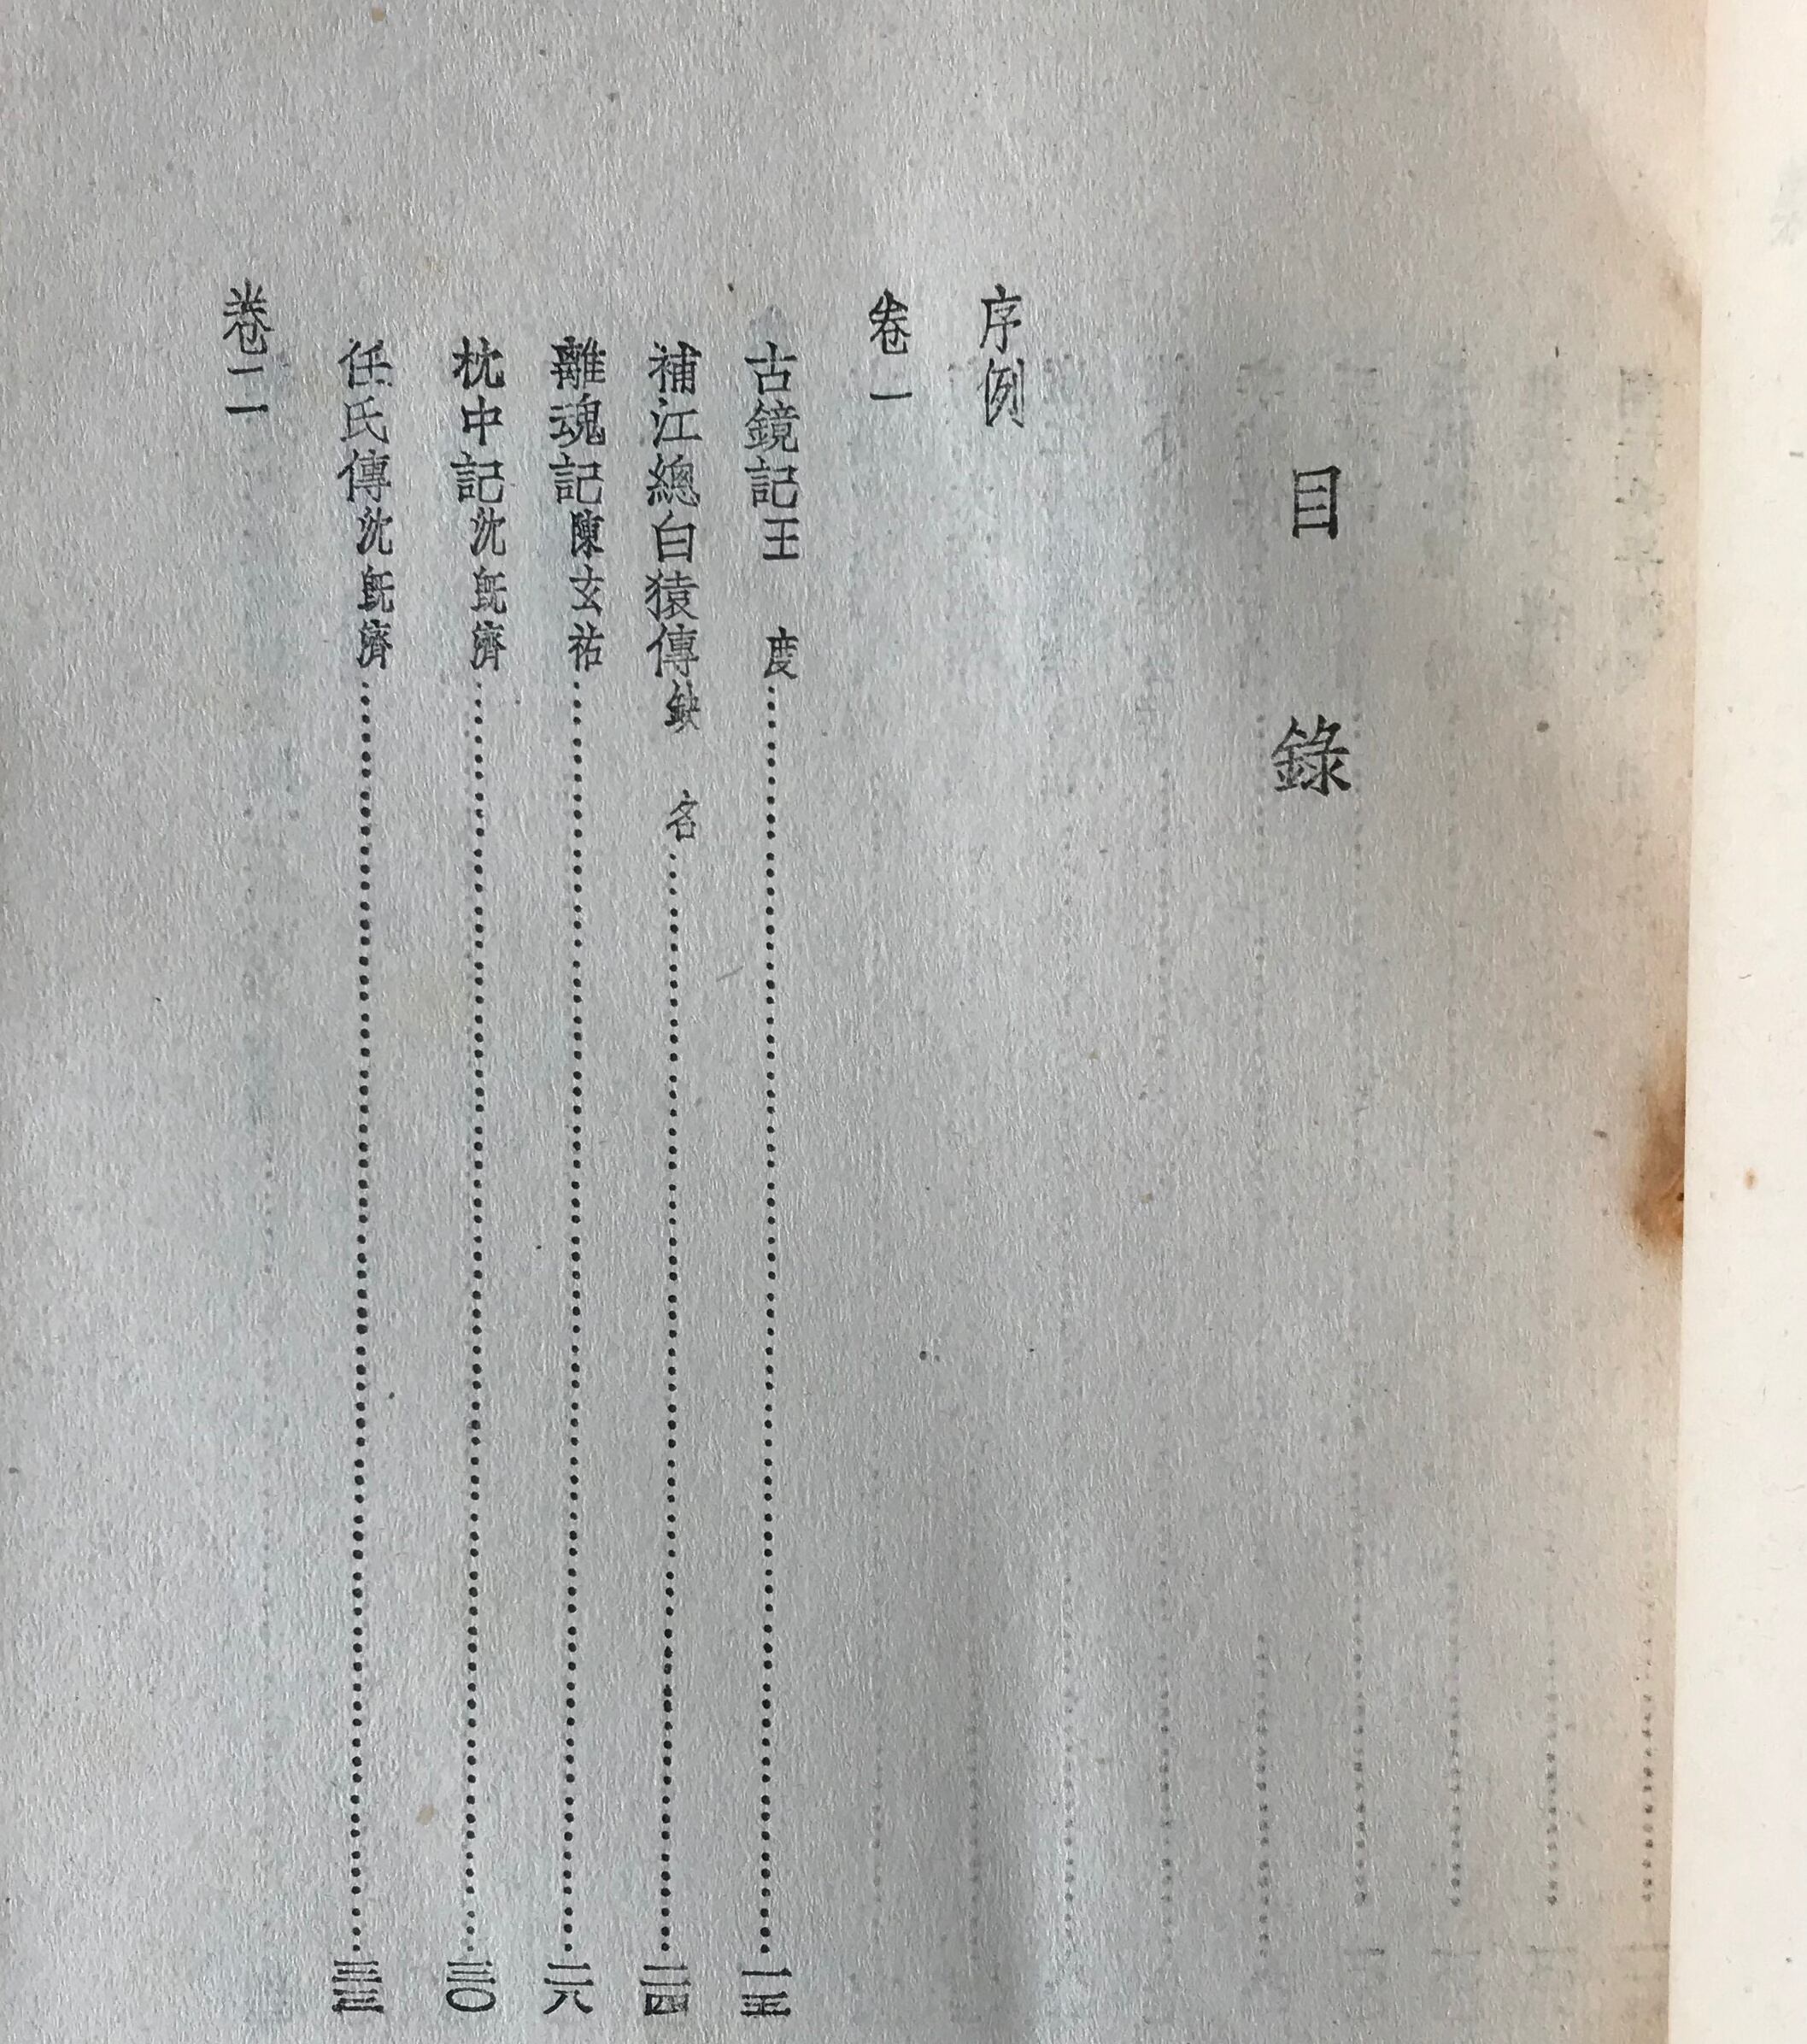 目錄
序例
卷一
古鏡記王 度……一五
補江總白猿傳缺 名……二四
離魂記陳玄祐……二八
枕中記沈既濟……三〇
任氏傳沈既濟……三三
卷二